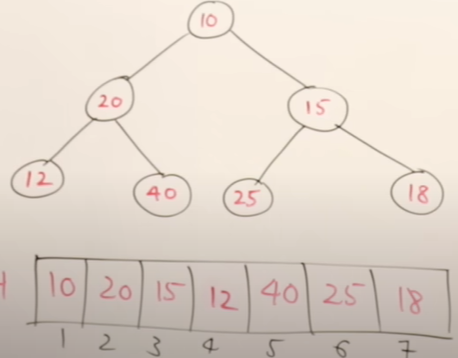 10
20 15
12 40 25 18
H 10 20 15 12 40 25 18
1 2 3 4 5 6 7